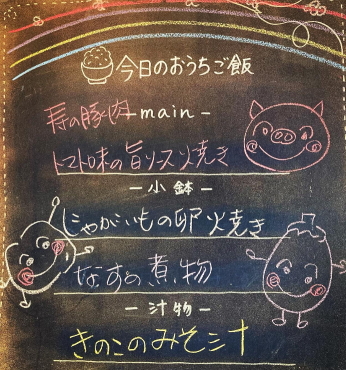 今日のおうちご飯
寿の豚肉 -main-
トマト味の旨ソース焼き
-小鉢-
じゃがいもの卵焼き
なすの煮物
-汁物-
きのこのみそ汁